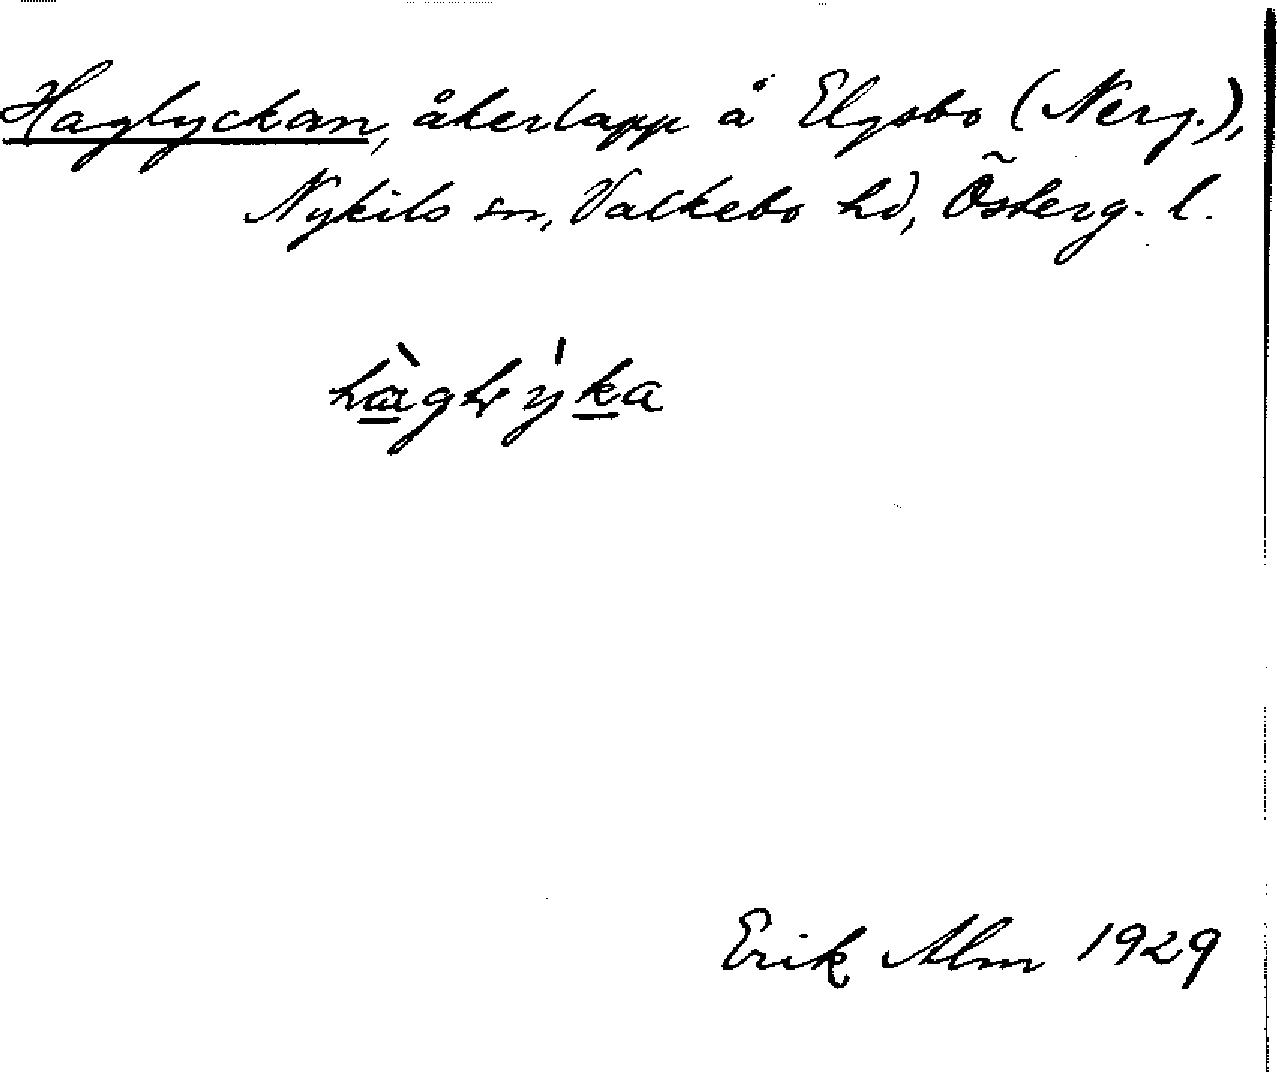 Haglyckan, åkerlapp å Elgsbo (Nerg.),
Nykils sn, Valkebo hd, Österg. l.
hàglýka
Erik Alm 1929